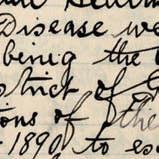 Disease we
being the
strict of
ions of the
1890 to es